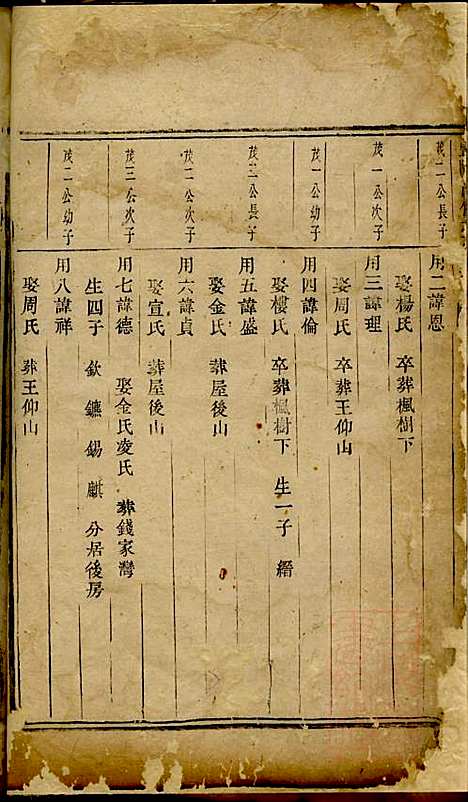 茂二公長子
用二諱恩
娶楊氏 卒葬楓樹下
茂一公次子
用三諱理
娶周氏 卒葬王仰山
茂一公幼子
用四諱倫
娶樓氏 卒葬楓樹下 生一子 縉
茂三公長子
用五諱盛
娶金氏 葬屋後山
茂二公次子
用六諱貞
娶宣氏 葬屋後山
茂三公次子
用七諱德 娶金氏凌氏 葬錢家灣
生四子 欽 鑣 錫 麒 分居後房
茂二公幼子
用八諱祥
娶周氏 葬王仰山